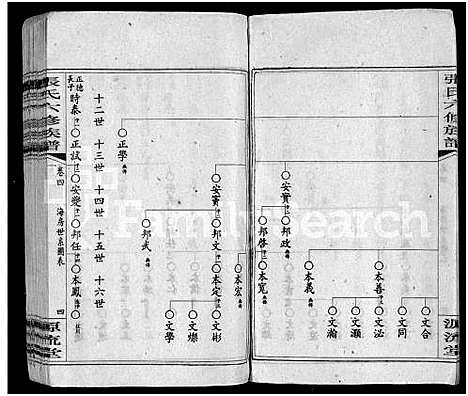 張氏六修族譜
源流堂
文合
文同
本善
文泌
文灝
文瀚
本義
安實
邦政
邦啓
本寬
本宏
安實
邦文
本定
文彬
文燦
文學
邦武
正學
十二世 十三世 十四世 十五世 十六世
正德長子 時泰 正試 安變 邦任 本鳳
張氏六修族譜
卷四 海房世系圖表 四
源流堂
FamilySearch